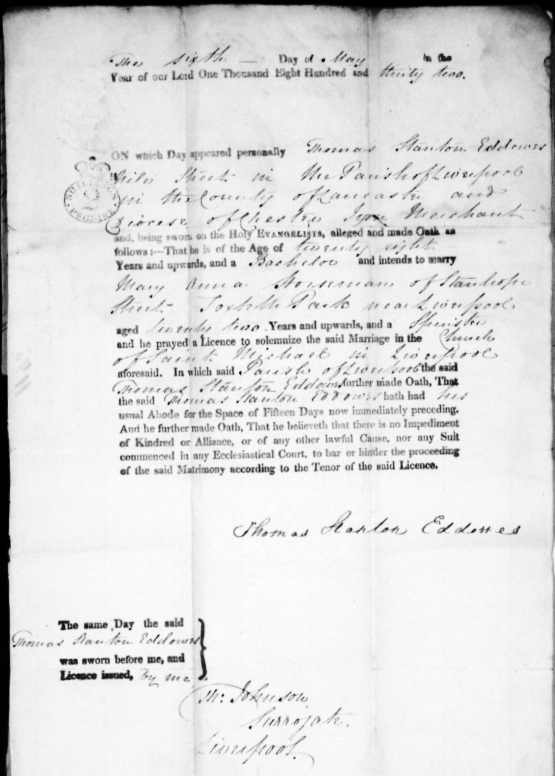 The sixth — Day of May in the
Year of our Lord One Thousand Eight Hundred and thirty two.
ON which Day appeared personally Thomas Stanton Eddowes
Street in the Parish of Liverpool
in the County of Lancaster and
Diocese of Chester Merchant
and, being sworn on the Holy EVANGELISTS, alleged and made Oath as
follows:—That he is of the Age of twenty eight
Years and upwards, and a Bachelor and intends to marry
Mary Anna of Stanhope
Street Toxteth Park near Liverpool
aged twenty two Years and upwards, and a Spinster
and he prayed a Licence to solemnize the said Marriage in the Church
of Saint Michael in Liverpool
aforesaid. In which said Parish of Liverpool the said
Thomas Stanton Eddowes further made Oath, That
the said Thomas Stanton Eddowes hath had his
usual Abode for the Space of Fifteen Days now immediately preceding.
And he further made Oath, That he believeth that there is no Impediment
of Kindred or Alliance, or of any other lawful Cause, nor any Suit
commenced in any Ecclesiastical Court, to bar or hinder the proceeding
of the said Matrimony according to the Tenor of the said Licence.
Thomas Stanton Eddowes
The same Day the said
Thomas Stanton Eddowes
was sworn before me, and
Licence issued, by me
Johnson
Surrogate.
Liverpool.